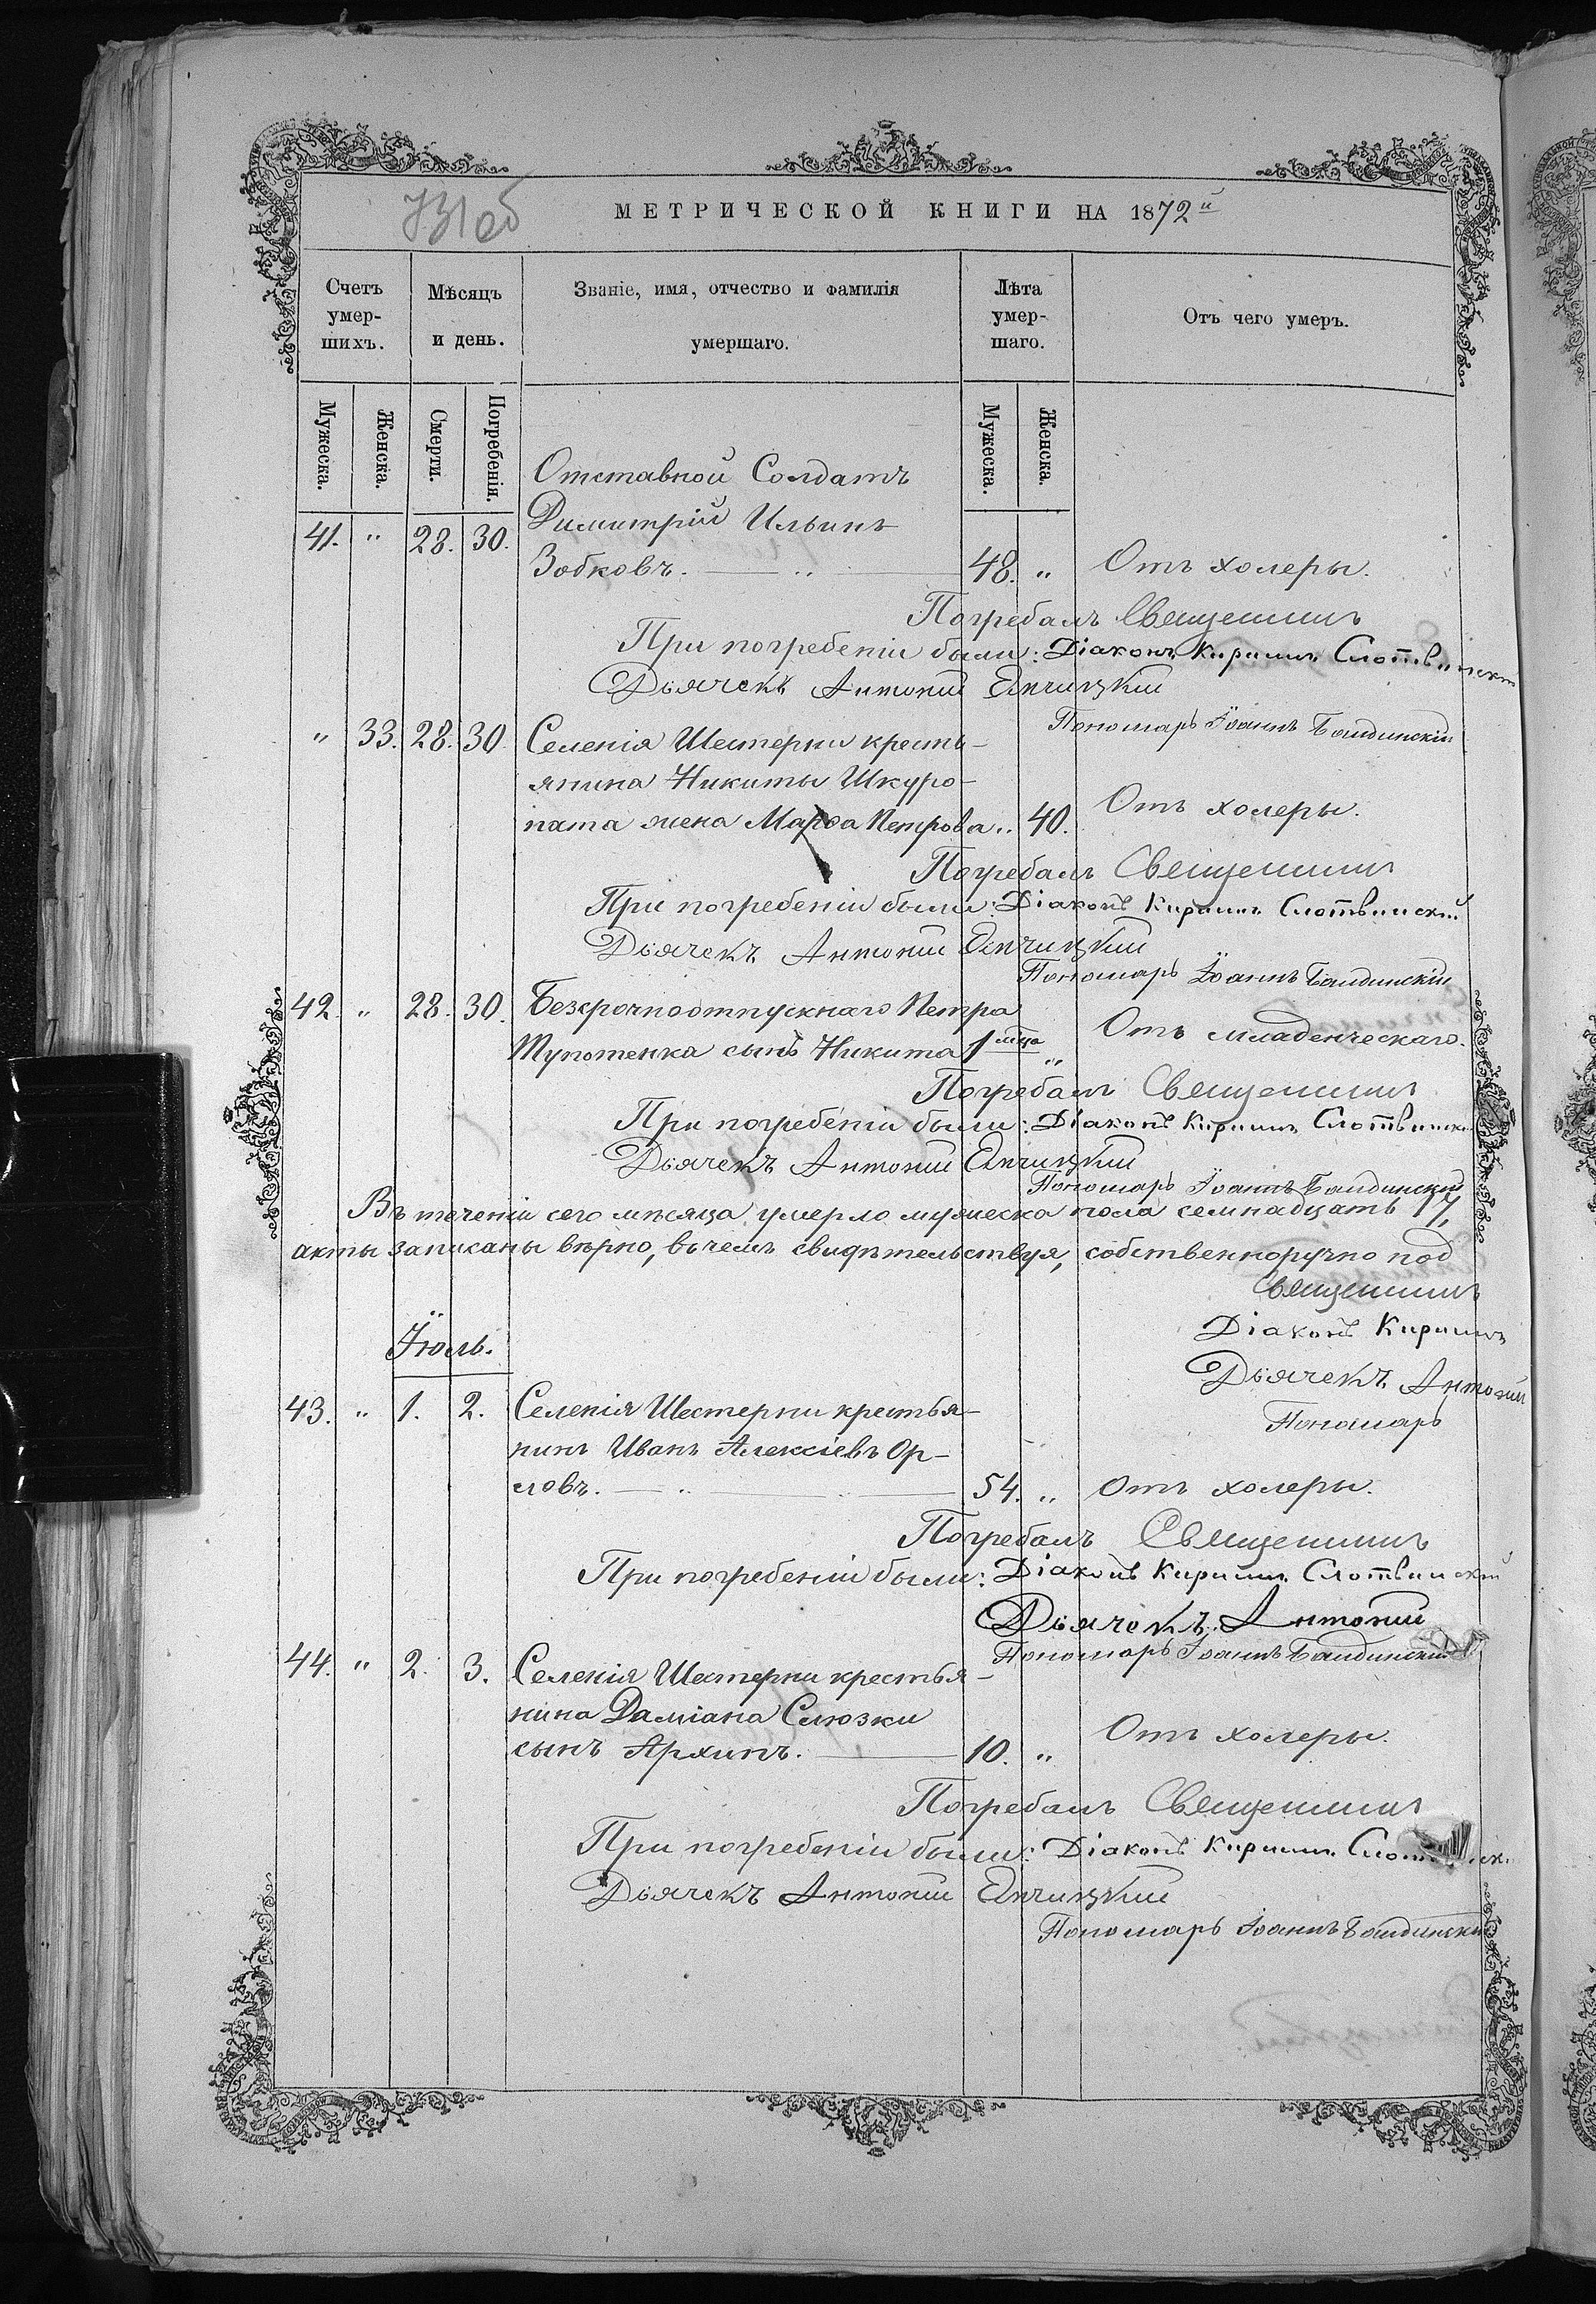 731об
МЕТРИЧЕСКОЙ КНИГИ НА 1872й
Счетъ умер- шихъ.
Мѣсяцъ и день.
Званіе, имя, отчество и фамилія умершаго.
Лѣта умер- шаго.
Отъ чего умеръ.
Мужеска. Женска. Смерти. Погребенія. Мужеска. Женска.
Отставной Солдатъ
41. " 28. 30. Димитрій Ильинъ
Зобковъ. 48. " Отъ холеры.
Погребалъ Священникъ
При погребеніи были: Діаконъ Кириллъ Слотвинскій
Дьячекъ Антоній
Пономарь Іоаннъ
" 33. 28. 30. Селенія Шестерни кресть-
янина Никиты Шкуро-
пата жена Марѳа Петрова " 40. Отъ холеры.
Погребалъ Священникъ
При погребеніи были: Діаконъ Кириллъ Слотвинскій
Дьячекъ Антоній
Пономарь Іоаннъ
42. " 28. 30. Безсрочноотпускнаго Петра
Тупотенка сынъ Никита 1 мца " Отъ младенческаго.
Погребалъ Священникъ
При погребеніи были: Діаконъ Кириллъ Слотвинскі
Дьячекъ Антоній
Пономарь Іоаннъ
Въ теченіи сего мѣсяца умерло мужеска пола семнадцать 17,
акты записаны вѣрно, въ чемъ свидѣтельствуя, собственноручно под
Священникъ
Діаконъ Кириллъ
Іюль.
Дьячекъ Антоній
43. " 1. 2. Селенія Шестерни крестья-
Пономарь
нинъ Иванъ Алексіевъ Ор-
ловъ. 54. " Отъ холеры.
Погребалъ Священникъ
При погребеніи были: Діаконъ Кириллъ Слотвинскій
Дьячекъ Антоній
Пономарь Іоаннъ
44. " 2. 3. Селенія Шестерни крестья-
нина Даміана Слюзки
сынъ Архипъ. 10. " Отъ холеры.
Погребалъ Священникъ
При погребеніи были: Діаконъ Кириллъ
Дьячекъ Антоній
Пономарь Іоаннъ